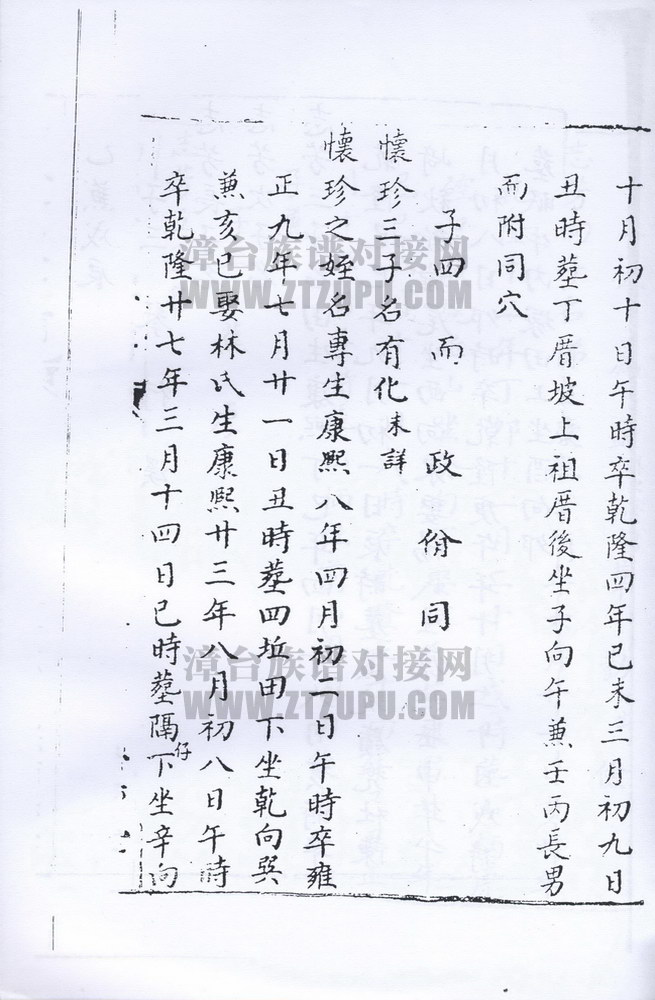 十月初十日午時卒乾隆四年己未三月初九日
丑時墓丁厝坡上祖厝後坐子向午兼壬丙長男
而附同穴
子四 而 政 份 同
懷珍三子名有化未詳
懷珍之姪名專生康熙八年四月初二日午時卒雍
正九年七月廿一日丑時墓四坵田下坐乾向巽
兼亥巳娶林氏生康熙廿三年八月初八日午時
卒乾隆廿七年三月十四日巳時墓隔仔下坐辛向
漳台族谱对接网
WWW.ZTZUPU.COM
漳台族谱对接网
WWW.ZTZUPU.COM